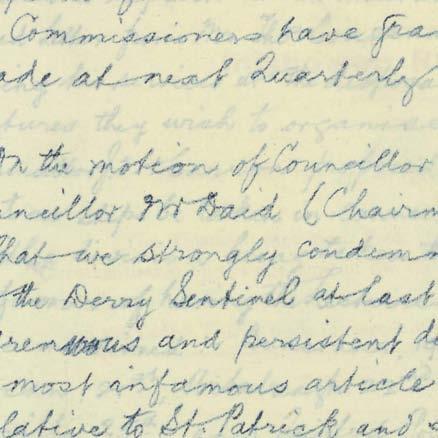 Commissioners have gra
ade at next Quarterly
tures they wish to organise
On the motion of Councillor
uncillor Mr Daid (Chairm
That we strongly condemn
the Derry Sentinel at last
renuous and persistent de
most infamous article
lative to St. Patrick and